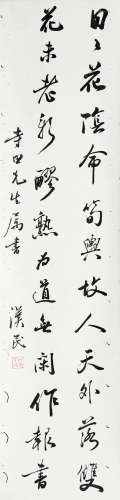 日々花陰命筍輿故人天外落雙
花未老新醪熟為道無閑作報書
寺田先生屬書
漢民